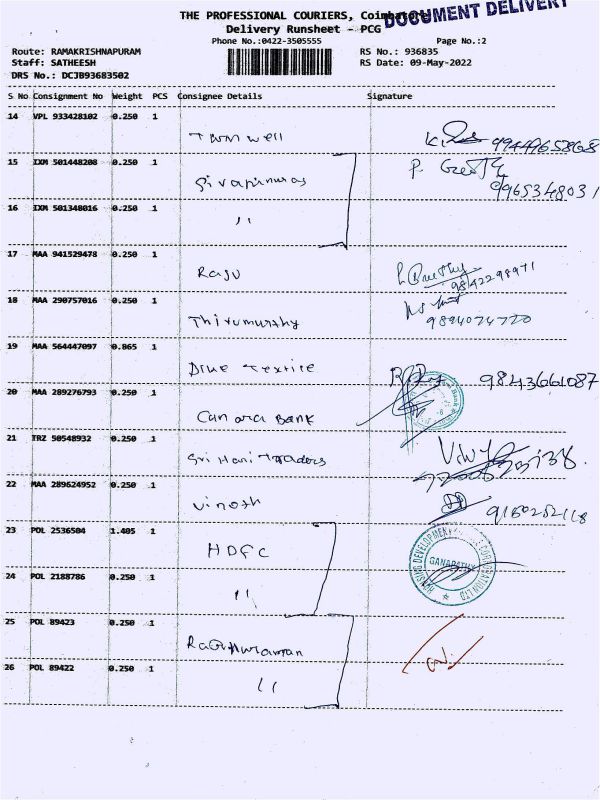 THE PROFESSIONAL COURIERS, Coimbatore
DOCUMENT DELIVERY
Delivery Runsheet - PCG
Phone No.:0422-3505555 Page No.:2
Route: RAMAKRISHNAPURAM RS No.: 936835
Staff: SATHEESH RS Date: 09-May-2022
DRS No.: DCJB93683502
S No Consignment No Weight PCS Consignee Details Signature
14 VPL 933428102 0.250 1
Townwell
15 IXM 501448208 0.250 1
9965348031
16 IXM 501348016 0.250 1
"
17 MAA 941529478 0.250 1
Raju 9842298971
18 MAA 290757016 0.250 1
Thirumurthy 9894074720
19 MAA 564447097 0.865 1
Textile 9843661087
20 MAA 289276793 0.250 1
Canara Bank
21 TRZ 50548932 0.250 1
Sri Hari Traders
22 MAA 289624952 0.250 1
Vinoth
23 POL 2536504 1.405 1
HDFC
HOUSING DEVELOPMENT CORPORATION LTD
GANAPATHY
24 POL 2188786 0.250 1
"
25 POL 89423 0.250 1
26 POL 89422 0.250 1
"